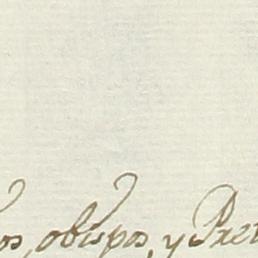 os, obispos, y Pre